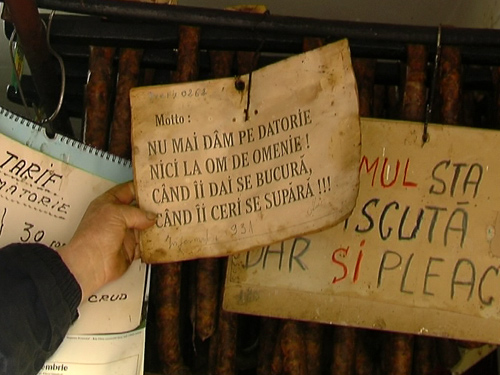 Motto :
NU MAI DÂM PE DATORIE
NICI LA OM DE OMENIE !
CÂND ÎI DAI SE BUCURĂ,
CÂND ÎI CERI SE SUPĂRĂ !!!
TARIF
30
CRUD
embrie
MUL STA
SCUTĂ
DAR ȘI PLEAC